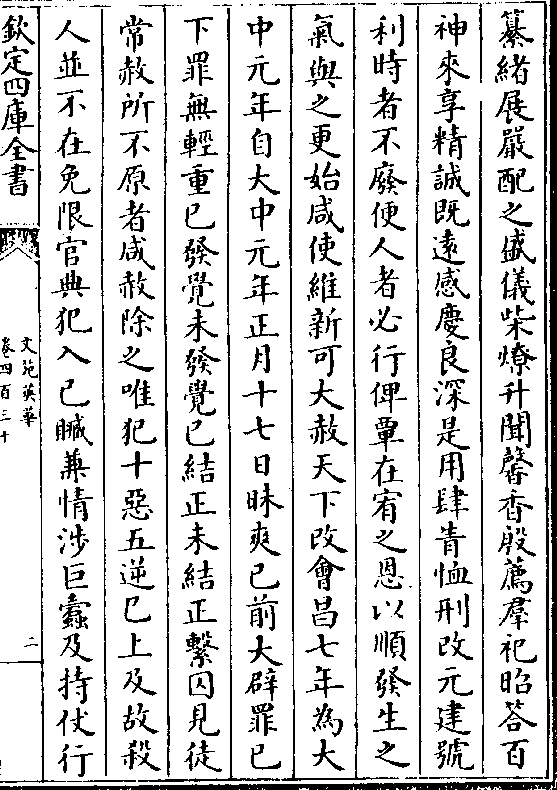 纂緒展嚴配之盛儀柴燎升聞馨香殷薦羣祀昭答百
神來享精誠旣逺感慶良深是用肆眚恤刑改元建號
利時者不廢便人者必行俾覃在宥之恩以順發生之
氣與之更始咸使維新可大赦天下改會昌七年為大
中元年自大中元年正月十七日昧爽已前大辟罪已
下罪無輕重已發覺未發覺已結正未結正繫囚見徒
常赦所不原者咸赦除之唯犯十惡五逆已上及故殺
人並不在免限官典犯入已贓兼情涉巨蠹及持仗行
欽定四庫全書
文苑英華
卷四百三十
二